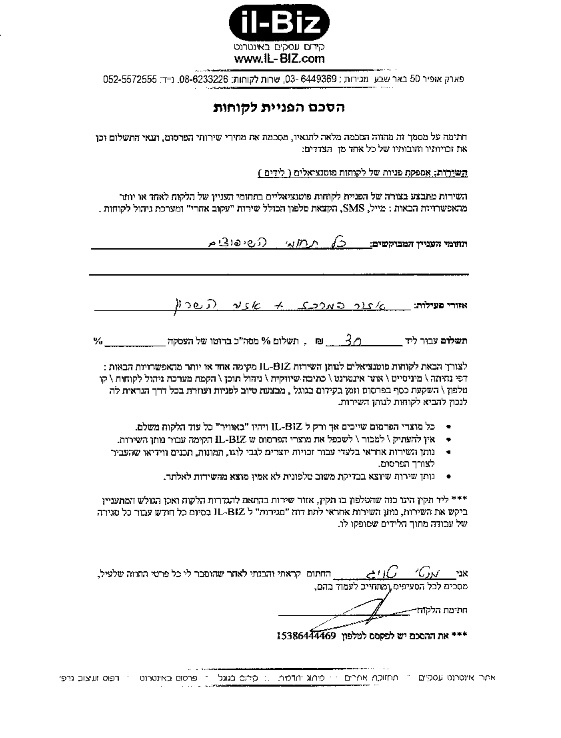 il-Biz
קידום עסקים באינטרנט
www.IL-BIZ.com
פארק אופיר 50 באר שבע מכירות: 03-6449369, שרות לקוחות: 08-6233226, נייד: 052-5572555
הסכם הפניית לקוחות
חתימה על מסמך זה מהווה הסכמה מלאה לתנאיו, מסכמת את מחירי שירותי הפרסום, תנאי התשלום וכן
את זכויותיו וחובותיו של כל אחד מן הצדדים:
השירות: אספקת פניות של לקוחות פוטנציאלים ( לידים )
השירות מתבצע בצורה של הפניית לקוחות פוטנציאליים בתחומי העניין של הלקוח לאחד או יותר
מהאפשרויות הבאות : מייל, SMS, הקצאת טלפון הכולל שירות "עקוב אחרי" ומערכת ניהול לקוחות .
תחומי העניין המבוקשים: כל תחומי השיפוצים
אזורי פעילות: אזור המרכז + אזור השרון
תשלום עבור ליד 30 ₪ , תשלום % מסה"כ ברוטו של העסקה %
לצורך הבאת לקוחות פוטנציאלים לנותן השירות IL-BIZ מקימה אחד או יותר מהאפשרויות הבאות :
דפי נחיתה \ מיניסייט \ אתר אינטרנט \ כתיבה שיווקית \ ניהול תוכן \ הקמת מערכת ניהול לקוחות \ קו
טלפון \ השקעת כסף בפרסום וזמן בקידום בגוגל , מבצעת סיוב לפניות ועוזרת בכל דרך הנראית לה
לנכון להביא לקוחות לנותן השירות.
• כל מוצרי הפרסום שייכים אך ורק ל IL-BIZ ויהיו "באוויר" כל עוד הלקוח משלם.
• אין להעתיק \ למכור \ לשכפל את מוצרי הפרסום ש IL-BIZ הקימה עבור נותן השירות.
• נותן השירות אחראי בלעדי עבור זכויות יוצרים לגבי לוגו, תמונות, תכנים ווידיאו שהעביר
לצורך הפרסום.
• נותן שירות שיוצא בבדיקת משוב טלפונית לא אמין מוצא מהשירות לאלתר.
*** ליד תקין הינו כזה שהטלפון בו תקין, אזור שירות בהתאם להגדרות הלקוח ואכן הגולש המתעניין
ביקש את השירות, נותן השירות אחראי לתת דוח "סגירות" ל IL-BIZ בסיום כל חודש עבור כל סגירה
של עבודה מתוך הלידים שסופקו לו.
אני מוטי החתום קראתי והבנתי לאחר שהוסבר לי כל פרטי החוזה שלעיל,
מסכים לכל הסעיפים ומתחייב לעמוד בהם,
חתימת הלקוח
*** את ההסכם יש לפקסס לטלפון 15386444469
אתר אינטרנט עסקיים :: תחזוקת אתרים :: מיתוג ותדמית :: קידום בגוגל :: פרסום באינטרנט :: דפוס ועיצוב גרפי